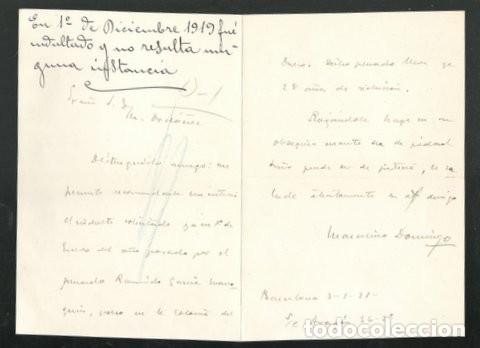 En 1º de Diciembre 1919 fué
indultado y no resulta nin-
guna instancia
Distinguido amigo: me
permito recomendarle con interés
el indulto solicitado ya en 1º de
Enero del año pasado por el
penado Raimundo García
en la colonia del
Dueso. Dicho penado lleva ya
28 años de reclusión.
Rogándole haga en su
obsequio cuanto sea de piedad
de justicia, le sa-
luda atentamente su af amigo
Marcelino Domingo
Barcelona 3-1-21-
todocoleccion.net